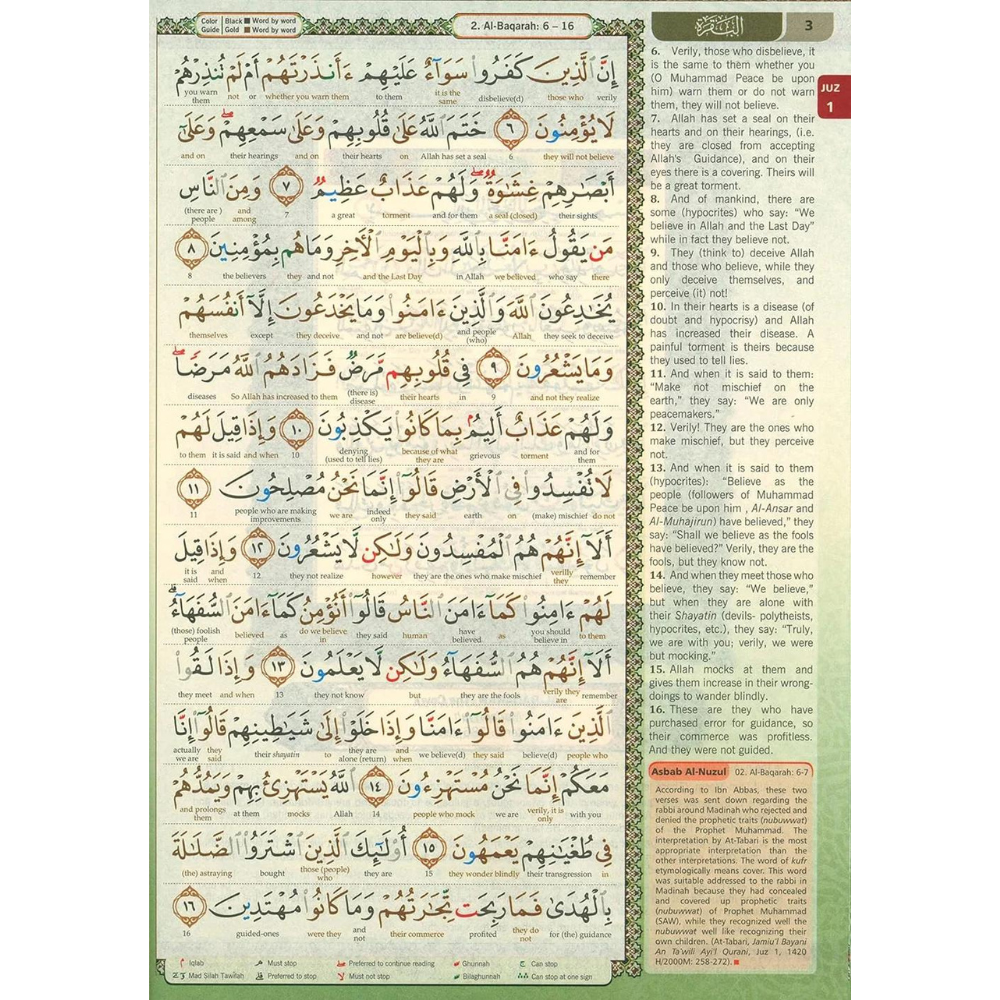 Color Guide | Black ■ Word by word
Gold ■ Word by word
2. Al-Baqarah: 6 – 16
البقرة
3
JUZ
1
إِنَّ ٱلَّذِينَ كَفَرُوا۟ سَوَآءٌ عَلَيْهِمْ ءَأَنذَرْتَهُمْ أَمْ لَمْ تُنذِرْهُمْ
you warn them not or whether you warn them to them it is the same disbelieve(d) those who verily
لَا يُؤْمِنُونَ ٦ خَتَمَ ٱللَّهُ عَلَىٰ قُلُوبِهِمْ وَعَلَىٰ سَمْعِهِمْ ۖ وَعَلَىٰٓ
and on their hearings and on their hearts on Allah has set a seal 6 they will not believe
أَبْصَـٰرِهِمْ غِشَـٰوَةٌ ۖ وَلَهُمْ عَذَابٌ عَظِيمٌ ٧ وَمِنَ ٱلنَّاسِ
(there are ) people and among 7 a great torment and for them a seal (closed) their sights
مَن يَقُولُ ءَامَنَّا بِٱللَّهِ وَبِٱلْيَوْمِ ٱلْـَٔاخِرِ وَمَا هُم بِمُؤْمِنِينَ ٨
8 the believers they and not and the Last Day in Allah we believed who say there
يُخَـٰدِعُونَ ٱللَّهَ وَٱلَّذِينَ ءَامَنُوا۟ وَمَا يَخْدَعُونَ إِلَّآ أَنفُسَهُمْ
themselves except they deceive and not are believe(d) and people (who) Allah they seek to deceive
وَمَا يَشْعُرُونَ ٩ فِى قُلُوبِهِم مَّرَضٌ فَزَادَهُمُ ٱللَّهُ مَرَضًا ۖ
diseases So Allah has increased to them (there is) disease their hearts in 9 and not they realize
وَلَهُمْ عَذَابٌ أَلِيمٌۢ بِمَا كَانُوا۟ يَكْذِبُونَ ١٠ وَإِذَا قِيلَ لَهُمْ
to them it is said and when 10 denying (used to tell lies) because of what they are grievous torment and for them
لَا تُفْسِدُوا۟ فِى ٱلْأَرْضِ قَالُوٓا۟ إِنَّمَا نَحْنُ مُصْلِحُونَ ١١
11 people who are making improvements we are indeed only they said earth on (make) mischief do not
أَلَآ إِنَّهُمْ هُمُ ٱلْمُفْسِدُونَ وَلَـٰكِن لَّا يَشْعُرُونَ ١٢ وَإِذَا قِيلَ
it is said and when 12 they not realize however they are the ones who make mischief verilly they remember
لَهُمْ ءَامِنُوا۟ كَمَآ ءَامَنَ ٱلنَّاسُ قَالُوٓا۟ أَنُؤْمِنُ كَمَآ ءَامَنَ ٱلسُّفَهَآءُ ۗ
(those) foolish people believed as do we believe in they said human have believed as you should believe in to them
أَلَآ إِنَّهُمْ هُمُ ٱلسُّفَهَآءُ وَلَـٰكِن لَّا يَعْلَمُونَ ١٣ وَإِذَا لَقُوا۟
they meet and when 13 they not know but they are the fools verily they are remember
ٱلَّذِينَ ءَامَنُوا۟ قَالُوٓا۟ ءَامَنَّا وَإِذَا خَلَوْا۟ إِلَىٰ شَيَـٰطِينِهِمْ قَالُوٓا۟ إِنَّا
actually we are they said their shayatin to they are alone (return) and when we believe(d) they said believe(d) people who
مَعَكُمْ إِنَّمَا نَحْنُ مُسْتَهْزِءُونَ ١٤ ٱللَّهُ يَسْتَهْزِئُ بِهِمْ وَيَمُدُّهُمْ
and prolongs them at them mocks Allah 14 people who mock we are verily, it is only with you
فِى طُغْيَـٰنِهِمْ يَعْمَهُونَ ١٥ أُو۟لَـٰٓئِكَ ٱلَّذِينَ ٱشْتَرَوُا۟ ٱلضَّلَـٰلَةَ
(the) astraying bought those (people) who they are 15 they wonder blindly their transgression in
بِٱلْهُدَىٰ فَمَا رَبِحَت تِّجَـٰرَتُهُمْ وَمَا كَانُوا۟ مُهْتَدِينَ ١٦
16 guided-ones were they and not their commerce profited they do not for (the) guidance
Iqlab Must stop Preferred to continue reading Ghunnah Can stop
Mad Silah Tawilah Preferred to stop Must not stop Bilaghunnah Can stop at one sign
6. Verily, those who disbelieve, it
is the same to them whether you
(O Muhammad Peace be upon
him) warn them or do not warn
them, they will not believe.
7. Allah has set a seal on their
hearts and on their hearings, (i.e.
they are closed from accepting
Allah's Guidance), and on their
eyes there is a covering. Theirs will
be a great torment.
8. And of mankind, there are
some (hypocrites) who say: "We
believe in Allah and the Last Day"
while in fact they believe not.
9. They (think to) deceive Allah
and those who believe, while they
only deceive themselves, and
perceive (it) not!
10. In their hearts is a disease (of
doubt and hypocrisy) and Allah
has increased their disease. A
painful torment is theirs because
they used to tell lies.
11. And when it is said to them:
"Make not mischief on the
earth," they say: "We are only
peacemakers."
12. Verily! They are the ones who
make mischief, but they perceive
not.
13. And when it is said to them
(hypocrites): "Believe as the
people (followers of Muhammad
Peace be upon him , Al-Ansar and
Al-Muhajirun) have believed," they
say: "Shall we believe as the fools
have believed?" Verily, they are the
fools, but they know not.
14. And when they meet those who
believe, they say: "We believe,"
but when they are alone with
their Shayatin (devils- polytheists,
hypocrites, etc.), they say: "Truly,
we are with you; verily, we were
but mocking."
15. Allah mocks at them and
gives them increase in their wrong-
doings to wander blindly.
16. These are they who have
purchased error for guidance, so
their commerce was profitless.
And they were not guided.
Asbab Al-Nuzul 02. Al-Baqarah: 6-7
According to Ibn Abbas, these two
verses was sent down regarding the
rabbi around Madinah who rejected and
denied the prophetic traits (nubuwwat)
of the Prophet Muhammad. The
interpretation by At-Tabari is the most
appropriate interpretation than the
other interpretations. The word of kufr
etymologically means cover. This word
was suitable addressed to the rabbi in
Madinah because they had concealed
and covered up prophetic traits
(nubuwwat) of Prophet Muhammad
(SAW), while they recognized well the
nubuwwat well like recognizing their
own children. (At-Tabari, Jamiu'l Bayani
An Ta'wili Ayi'l Qurani, Juz 1, 1420
H/2000M: 258-272).